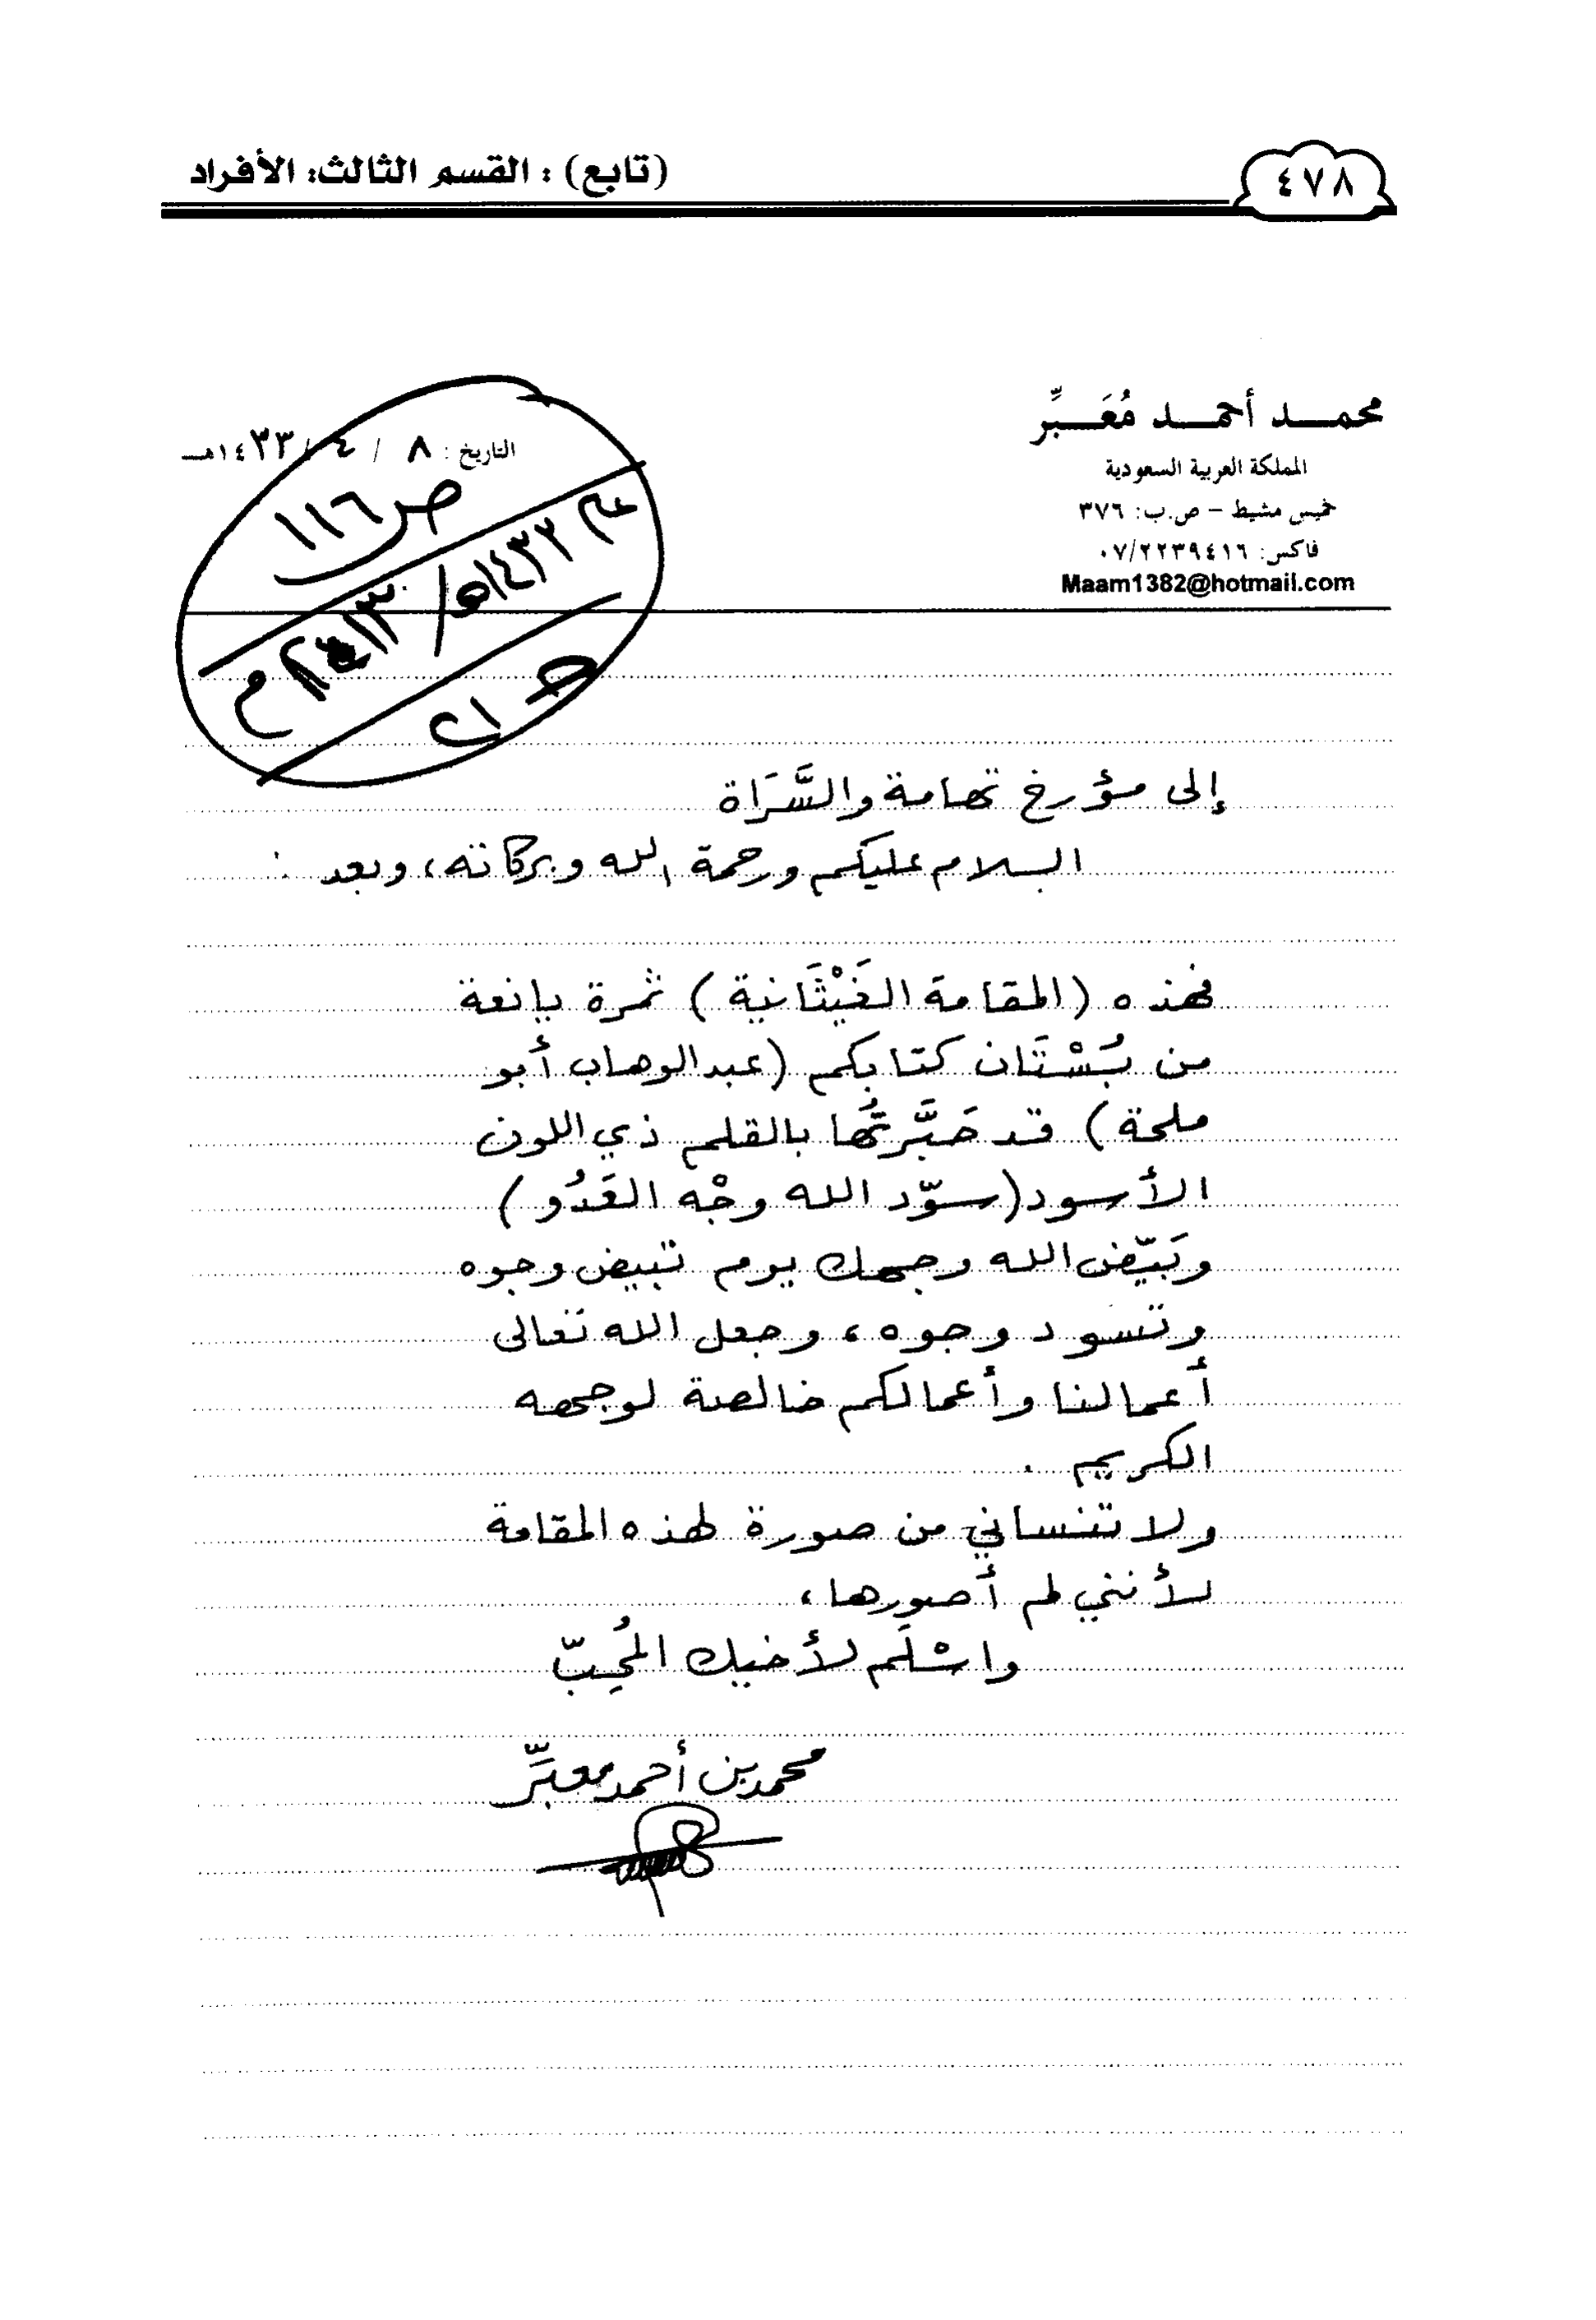 ٤٧٨
(تابع) : القسم الثالث: الأفراد
محمد أحمد مُعَبِّر
المملكة العربية السعودية
خميس مشيط - ص.ب: ٣٧٦
فاكس: ٠٧/٢٢٣٩٤١٦
Maam1382@hotmail.com
التاريخ : ٨ / ٤ / ١٤٣٣هـ
ص ١١٦
إلى مؤرخ تهامة والسَّرَاة
السلام عليكم ورحمة الله وبركاته، وبعد :
فهذه (المقامة الغَيْثَانية) ثمرة يانعة
من بُسْتَان كتابكم (عبدالوهاب أبو
ملحة) قد حَبَّرتُها بالقلم ذي اللون
الأسود (سوّد الله وجْه العَدُو)
وبَيّض الله وجهك يوم تبيض وجوه
وتسود وجوه، وجعل الله تعالى
أعمالنا وأعمالكم خالصة لوجهه
الكريم .
ولا تنساني من صورة لهذه المقامة
لأنني لم أصورها،
واسْلَم لأخيك المُحِبّ
محمد بن أحمد معبِّر